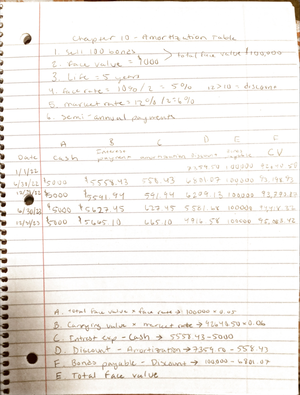 Chapter 10 - Amortization Table
1. Sell 100 bonds
2. Face value = $1000 > total face value $100,000
3. Life = 5 years
4. face rate = 10% / 2 = 5% 12 > 10 = discount
5. market rate = 12% / 2 = 6%
6. Semi-annual payments
A B C D E F
Date Cash Interest Discount CV
1/1/22 7359.50 100000
6/30/22 $5000 $5558.43 558.43 6801.07 100000
$5000 $5591.94 591.94 6209.13 100000
6/30/23 $5000 $5627.45 627.45 5581.68 100000
$5000 $5665.10 665.10 4916.58 100000
A. total face value x face rate → 100,000 x 0.05
B. Carrying value x market rate → 92640.50 x 0.06
C. Intrest Exp - Cash → 5558.43 - 5000
D. Discount - Amortization → 7359.50 - 558.43
F. Bonds payable - Discount → 100,000 - 6801.07
E. Total Face value